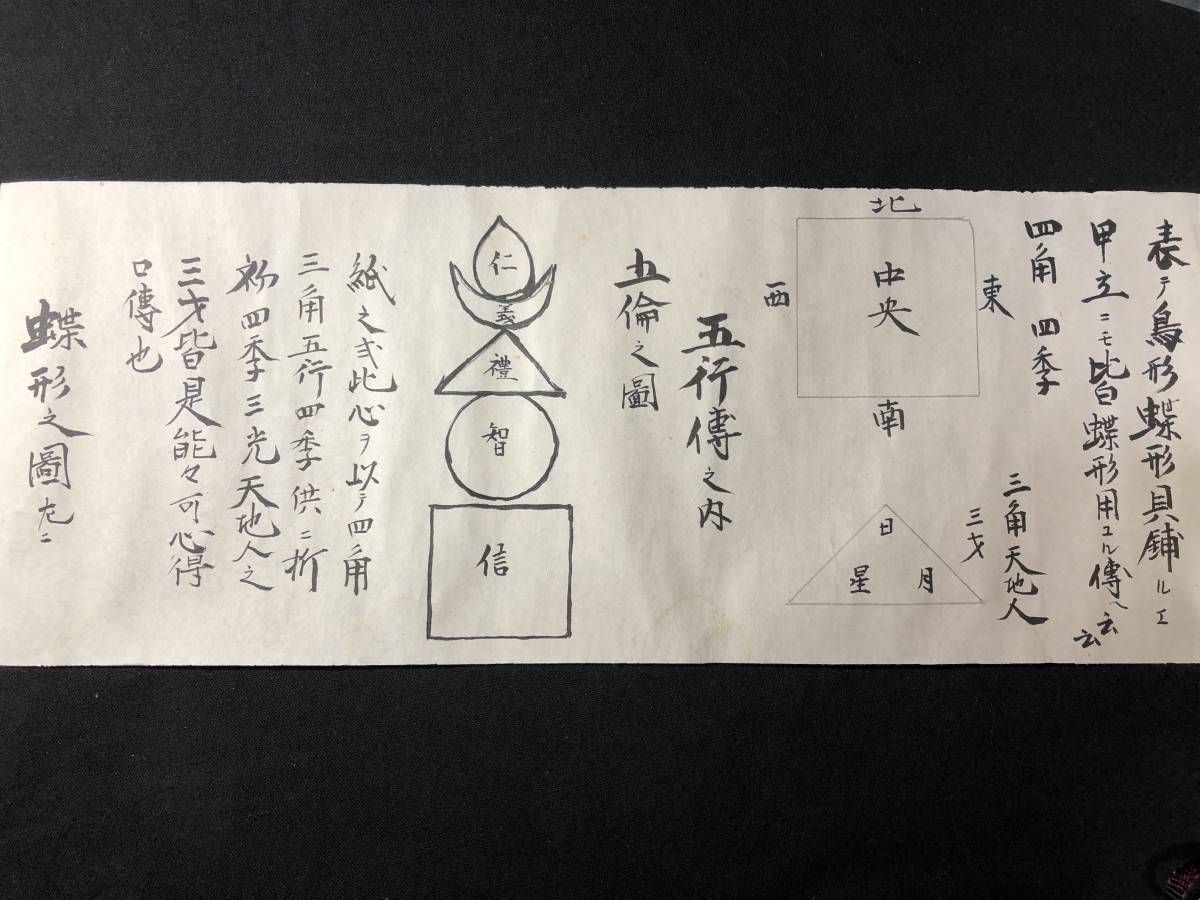 表テ鳥形蝶形具鋪ルエ
甲立ニモ皆蝶形用ユル傳ヘ云云
四角 四季
北
東
中央
西
南
三角天地人
三才
日
月
星
五行傳之内
五倫之圖
仁
義
禮
智
信
紙之弐此心ヲ以テ四角
三角五行四季供ニ折
初四季三光天地人之
三才皆是能々可心得
口傳也
蝶形之圖左ニ